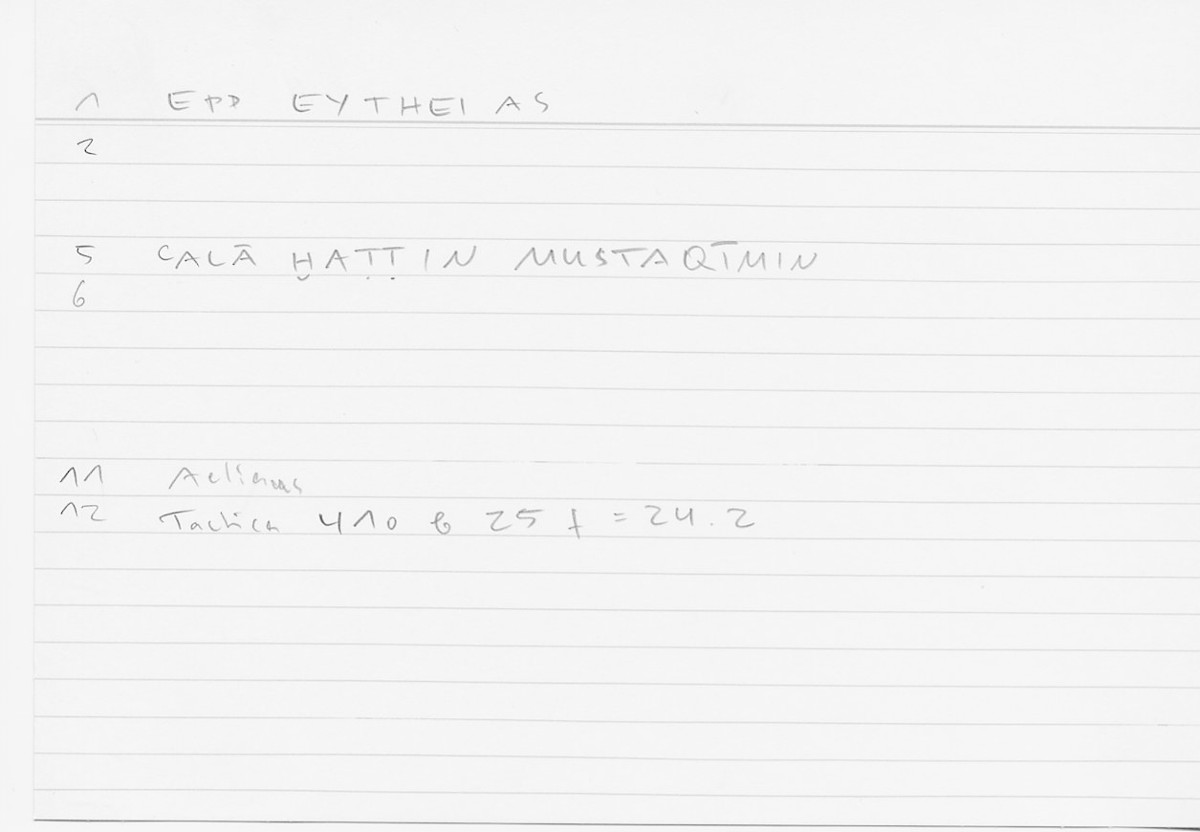 1 EPD EYTHEIAS
2
5 CALĀ ḪAṬṬIN MUSTAQĪMIN
6
11 Aelianus
12 Tactica 410 b 25 f = 24.2